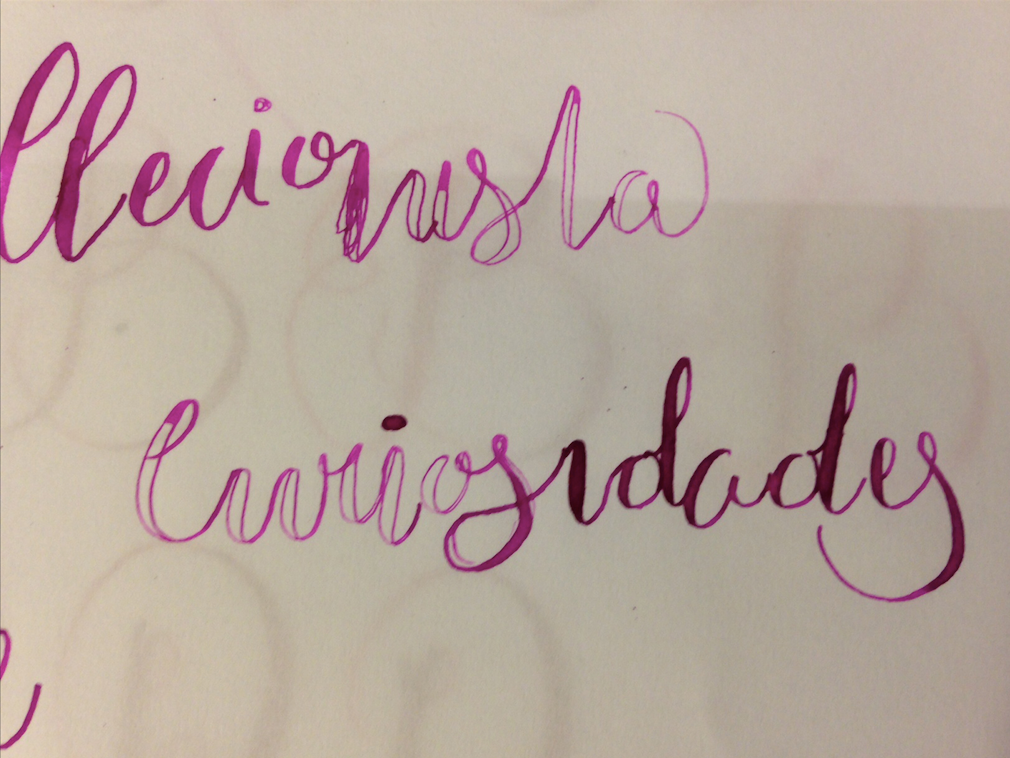 llecionista
Curiosidades
e